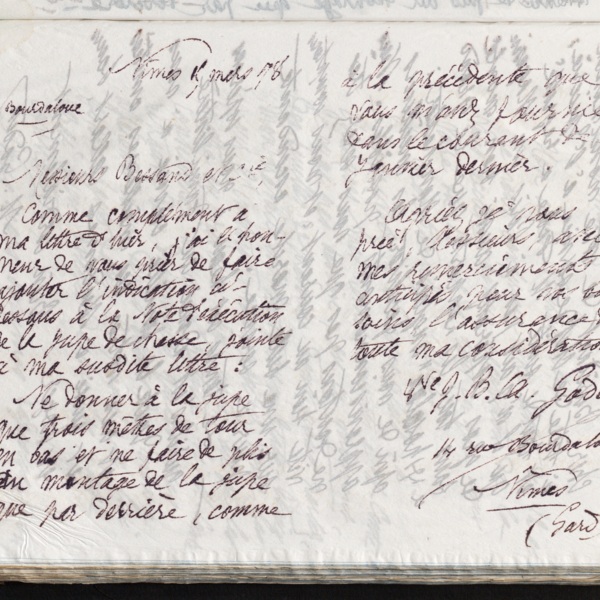 Nîmes mars
Bourdaloue
Messieurs Bessand et Cie,
Comme complément a
ma lettre d'hier, j'ai l'hon-
neur de vous prier de faire
ajouter l'indication ci-
dessous à la Note d'exécution
de la jupe de chasse, jointe
à ma susdite lettre :
Ne donner à la jupe
que trois mètres de tour
en bas et ne faire de plis
au montage de la jupe
que par derrière, comme
à la précédente que
vous m'avez fournie
dans le courant de
Janvier dernier.
Agréez, je vous
prie, Messieurs, avec
mes remerciements
anticipés pour vos
soins, l'assurance
toute ma considération
Vve J. B. A. God
14 rue Bourdalou
Nîmes
(Gard